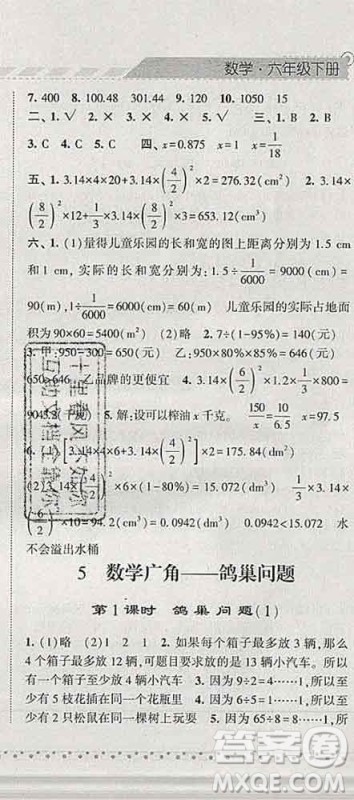 数学·六年级下册
7. 400 8. 100.48 301.44 9. 120 10. 1050 15
二、1. √ 2. × 3. × 4. √ 三、1. B 2. B
3. C 4. C 四、x=0.875 x=1 x=1/18
五、1. 3.14×4×20+3.14×(4/2)²=276.32(cm²) 2. 3.14×
(8/2)²×12+1/3×3.14×(8/2)²×3=653.12(cm³)
六、1. (1)量得儿童乐园的长和宽的图上距离分别为1.5 cm
和1 cm, 实际的长和宽分别为1.5÷1/6000=9000(cm)=
90(m), 1÷1/6000=6000(cm)=60(m) 儿童乐园的实际占地面
积为90×60=5400(m²) (2)略 2. 7÷(1-95%)=140(元)
3. 甲:950-300=650(元) 乙:950×85%×80%=646(元)
650>646 乙品牌的更便宜 4. 3.14×(6/2)²×1.2×1/3×800=
(千克) 5. 解:设可以榨油x千克。 150/x=10/6.5 x=97.5
3.14×(4/2)²×10=125.6(dm²)
(2)3.14×(4/2)²×10×3/4=94.2(dm³) 1/3×3.14×
(6/2)²×10=94.2(dm³)=0.0942(m³) 0.0942<15.072 水
不会溢出水桶
5 数学广角——鸽巢问题
第1课时 鸽巢问题(1)
1. (1)略 (2)1 2 1 2. 如果每个箱子最多放3辆,那么
4个箱子最多放12辆,可题中有13辆小汽车。所以至
少有一个箱子里要放4辆小汽车 3. 因为9÷2=4……1,所
以至少有5枝花插在同一个花瓶里 4. 因为6÷5=1……1,所以至
少有2只松鼠在同一棵树上玩耍 5. 因为65÷8=8……1,
答案圈
MXQE.COM